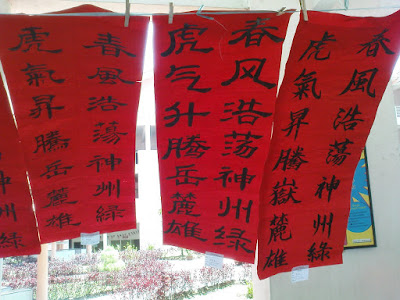 神州綠
春風浩蕩神州綠
虎氣昇騰岳麓雄
春风浩荡神州绿
虎气升腾岳麓雄
春風浩蕩神州綠
虎氣昇騰嶽麓雄